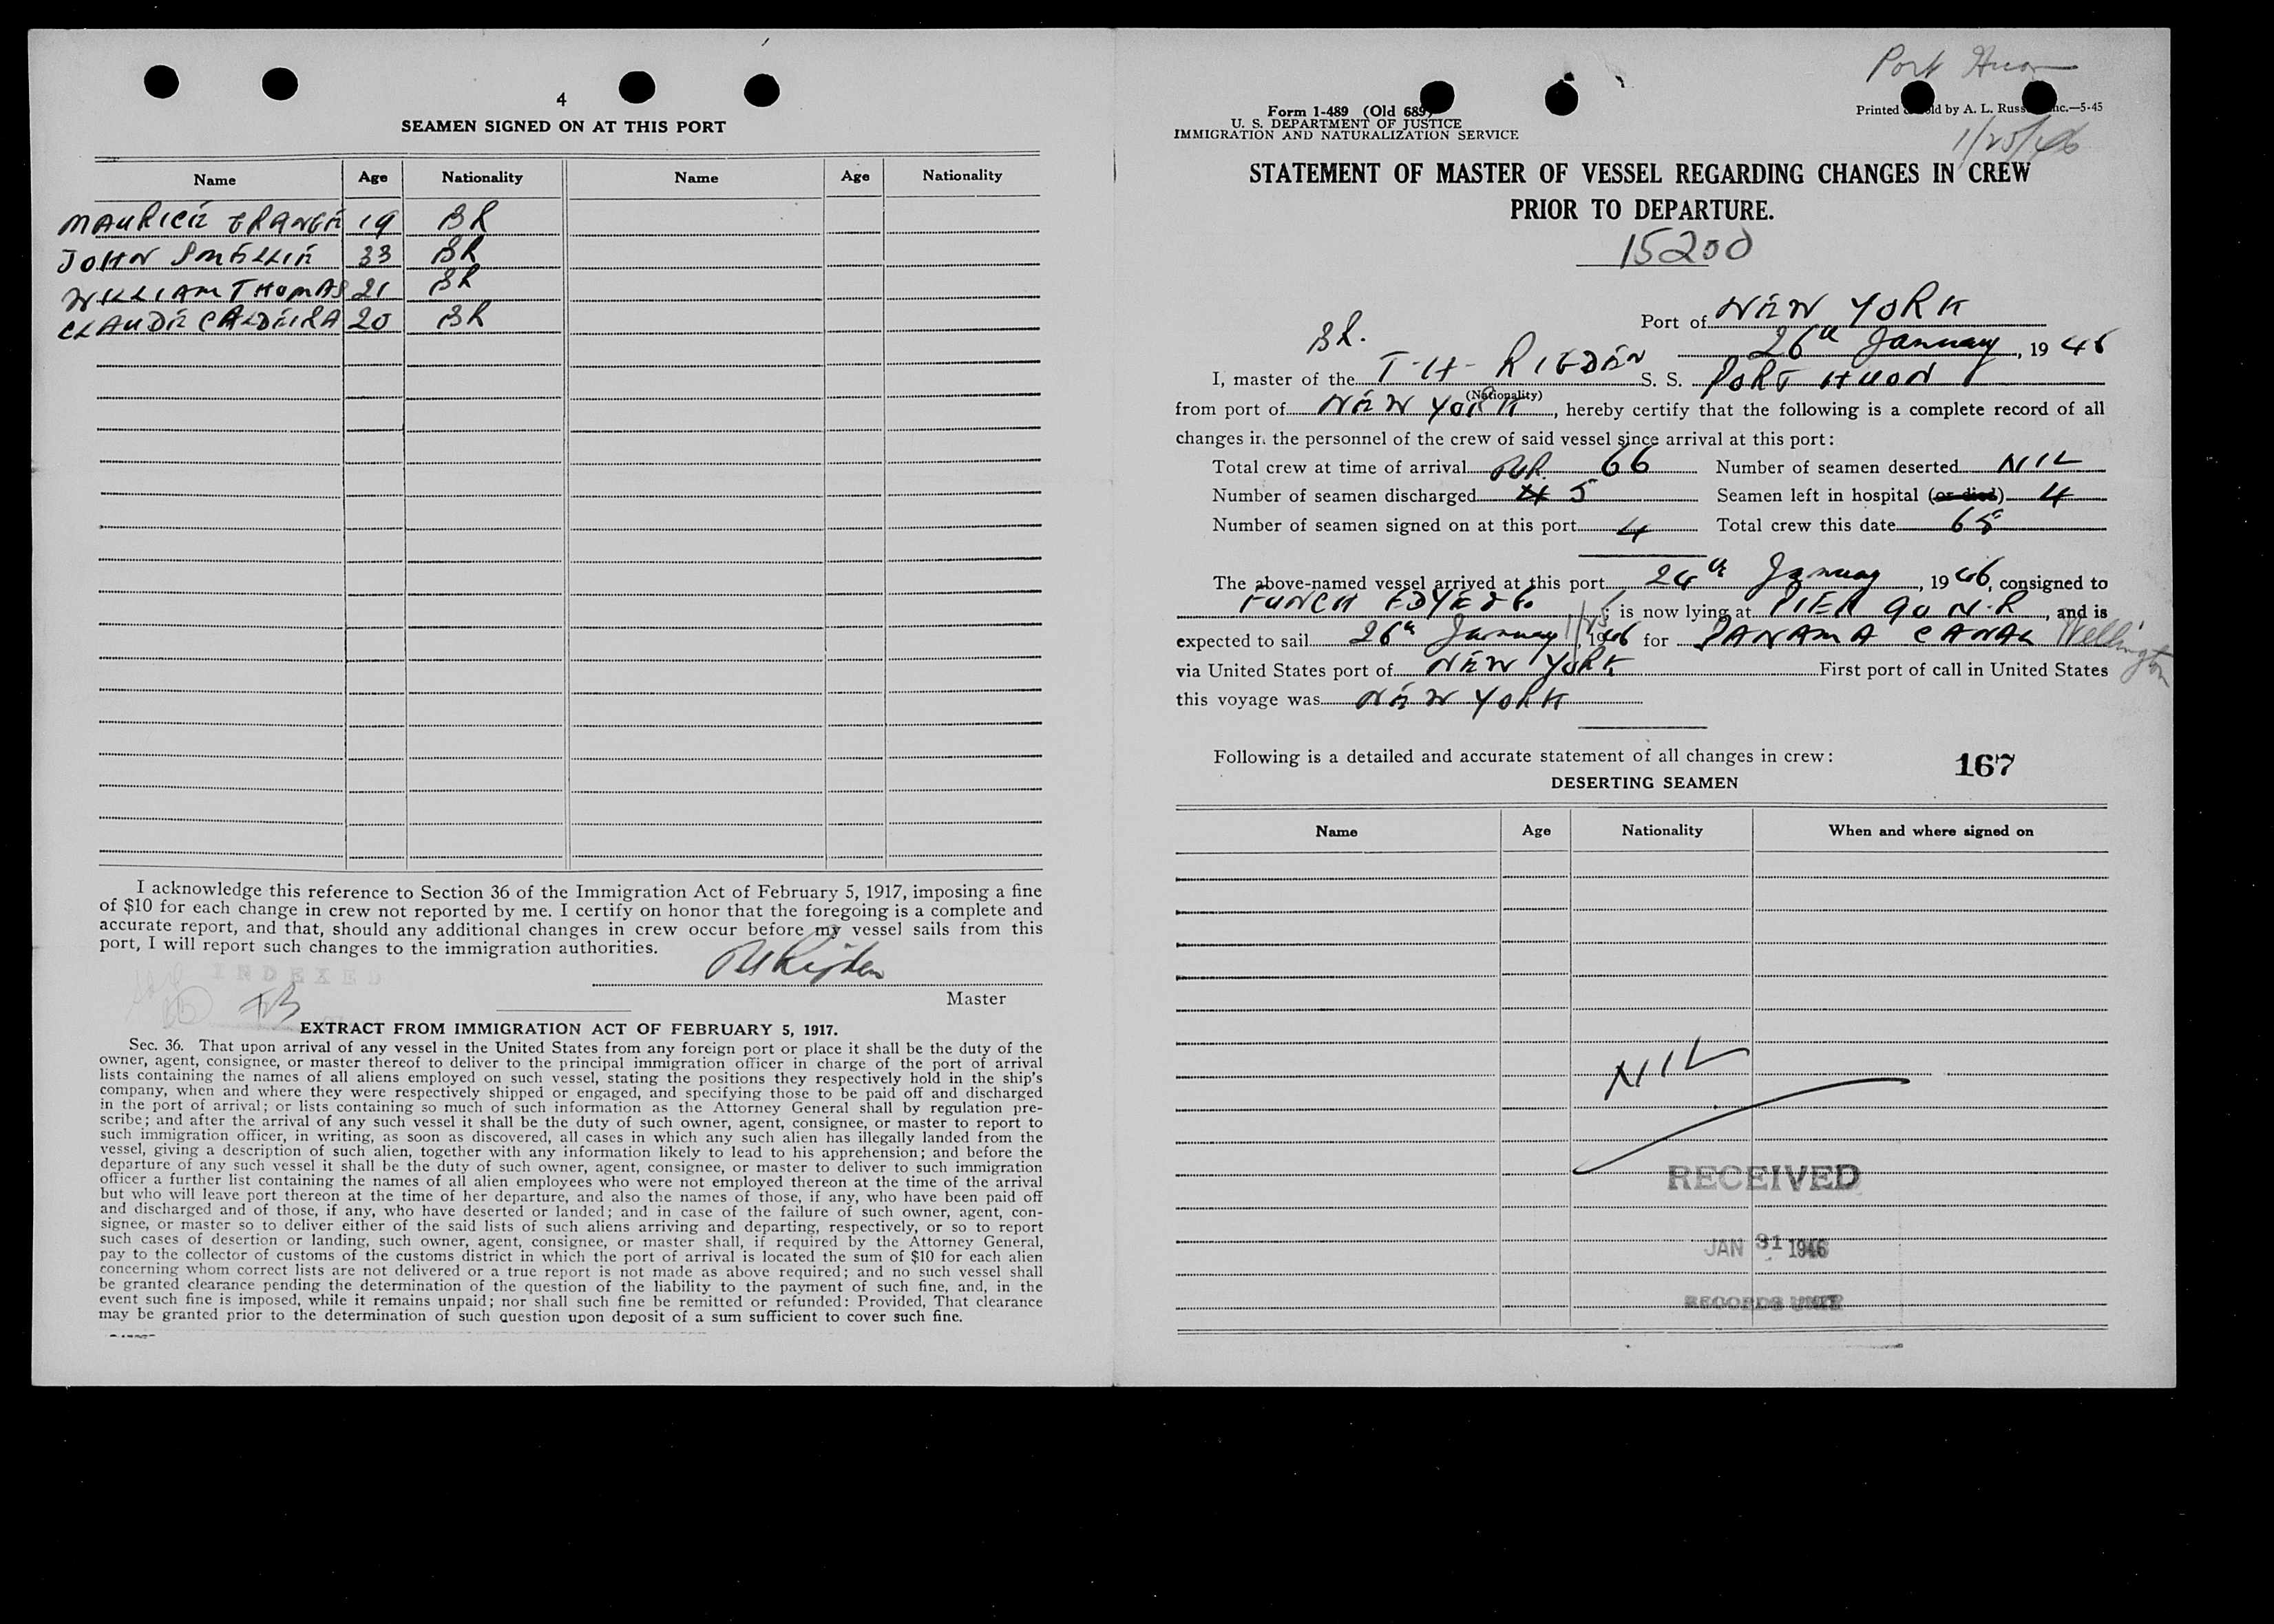 4
SEAMEN SIGNED ON AT THIS PORT
Name Age Nationality Name Age Nationality
MAURICE GRANGE 19 BR
JOHN SMELLIE 33 BR
WILLIAM THOMAS 21 BR
CLAUDE CALDEIRA 20 BR
I acknowledge this reference to Section 36 of the Immigration Act of February 5, 1917, imposing a fine
of $10 for each change in crew not reported by me. I certify on honor that the foregoing is a complete and
accurate report, and that, should any additional changes in crew occur before my vessel sails from this
port, I will report such changes to the immigration authorities.
INDEXED
Master
EXTRACT FROM IMMIGRATION ACT OF FEBRUARY 5, 1917.
Sec. 36. That upon arrival of any vessel in the United States from any foreign port or place it shall be the duty of the
owner, agent, consignee, or master thereof to deliver to the principal immigration officer in charge of the port of arrival
lists containing the names of all aliens employed on such vessel, stating the positions they respectively hold in the ship's
company, when and where they were respectively shipped or engaged, and specifying those to be paid off and discharged
in the port of arrival; or lists containing so much of such information as the Attorney General shall by regulation pre-
scribe; and after the arrival of any such vessel it shall be the duty of such owner, agent, consignee, or master to report to
such immigration officer, in writing, as soon as discovered, all cases in which any such alien has illegally landed from the
vessel, giving a description of such alien, together with any information likely to lead to his apprehension; and before the
departure of any such vessel it shall be the duty of such owner, agent, consignee, or master to deliver to such immigration
officer a further list containing the names of all alien employees who were not employed thereon at the time of the arrival
but who will leave port thereon at the time of her departure, and also the names of those, if any, who have been paid off
and discharged and of those, if any, who have deserted or landed; and in case of the failure of such owner, agent, con-
signee, or master so to deliver either of the said lists of such aliens arriving and departing, respectively, or so to report
such cases of desertion or landing, such owner, agent, consignee, or master shall, if required by the Attorney General,
pay to the collector of customs of the customs district in which the port of arrival is located the sum of $10 for each alien
concerning whom correct lists are not delivered or a true report is not made as above required; and no such vessel shall
be granted clearance pending the determination of the question of the liability to the payment of such fine, and, in the
event such fine is imposed, while it remains unpaid; nor shall such fine be remitted or refunded: Provided, That clearance
may be granted prior to the determination of such question upon deposit of a sum sufficient to cover such fine.
Port Huon
Form 1-489 (Old 689)
U. S. DEPARTMENT OF JUSTICE
IMMIGRATION AND NATURALIZATION SERVICE
Printed by A. L. Russ Inc.—5-45
1/25/46
STATEMENT OF MASTER OF VESSEL REGARDING CHANGES IN CREW
PRIOR TO DEPARTURE.
15200
Port of NEW YORK
26th January, 19 46
BR.
I, master of the T-H- RIGDEN S. S. PORT HUON
(Nationality)
from port of NEW YORK, hereby certify that the following is a complete record of all
changes in the personnel of the crew of said vessel since arrival at this port:
Total crew at time of arrival 66 Number of seamen deserted NIL
Number of seamen discharged 5 Seamen left in hospital (or died) 4
Number of seamen signed on at this port 4 Total crew this date 65
The above-named vessel arrived at this port 24th January, 19 46, consigned to
FUNCH EDYE & Co.; is now lying at PIER 90 N.R, and is
expected to sail 26th January 1946 for PANAMA CANAL Wellington
via United States port of NEW YORK First port of call in United States
this voyage was NEW YORK
Following is a detailed and accurate statement of all changes in crew:
167
DESERTING SEAMEN
Name Age Nationality When and where signed on
NIL
RECEIVED
JAN 31 1946
RECORDS UNIT